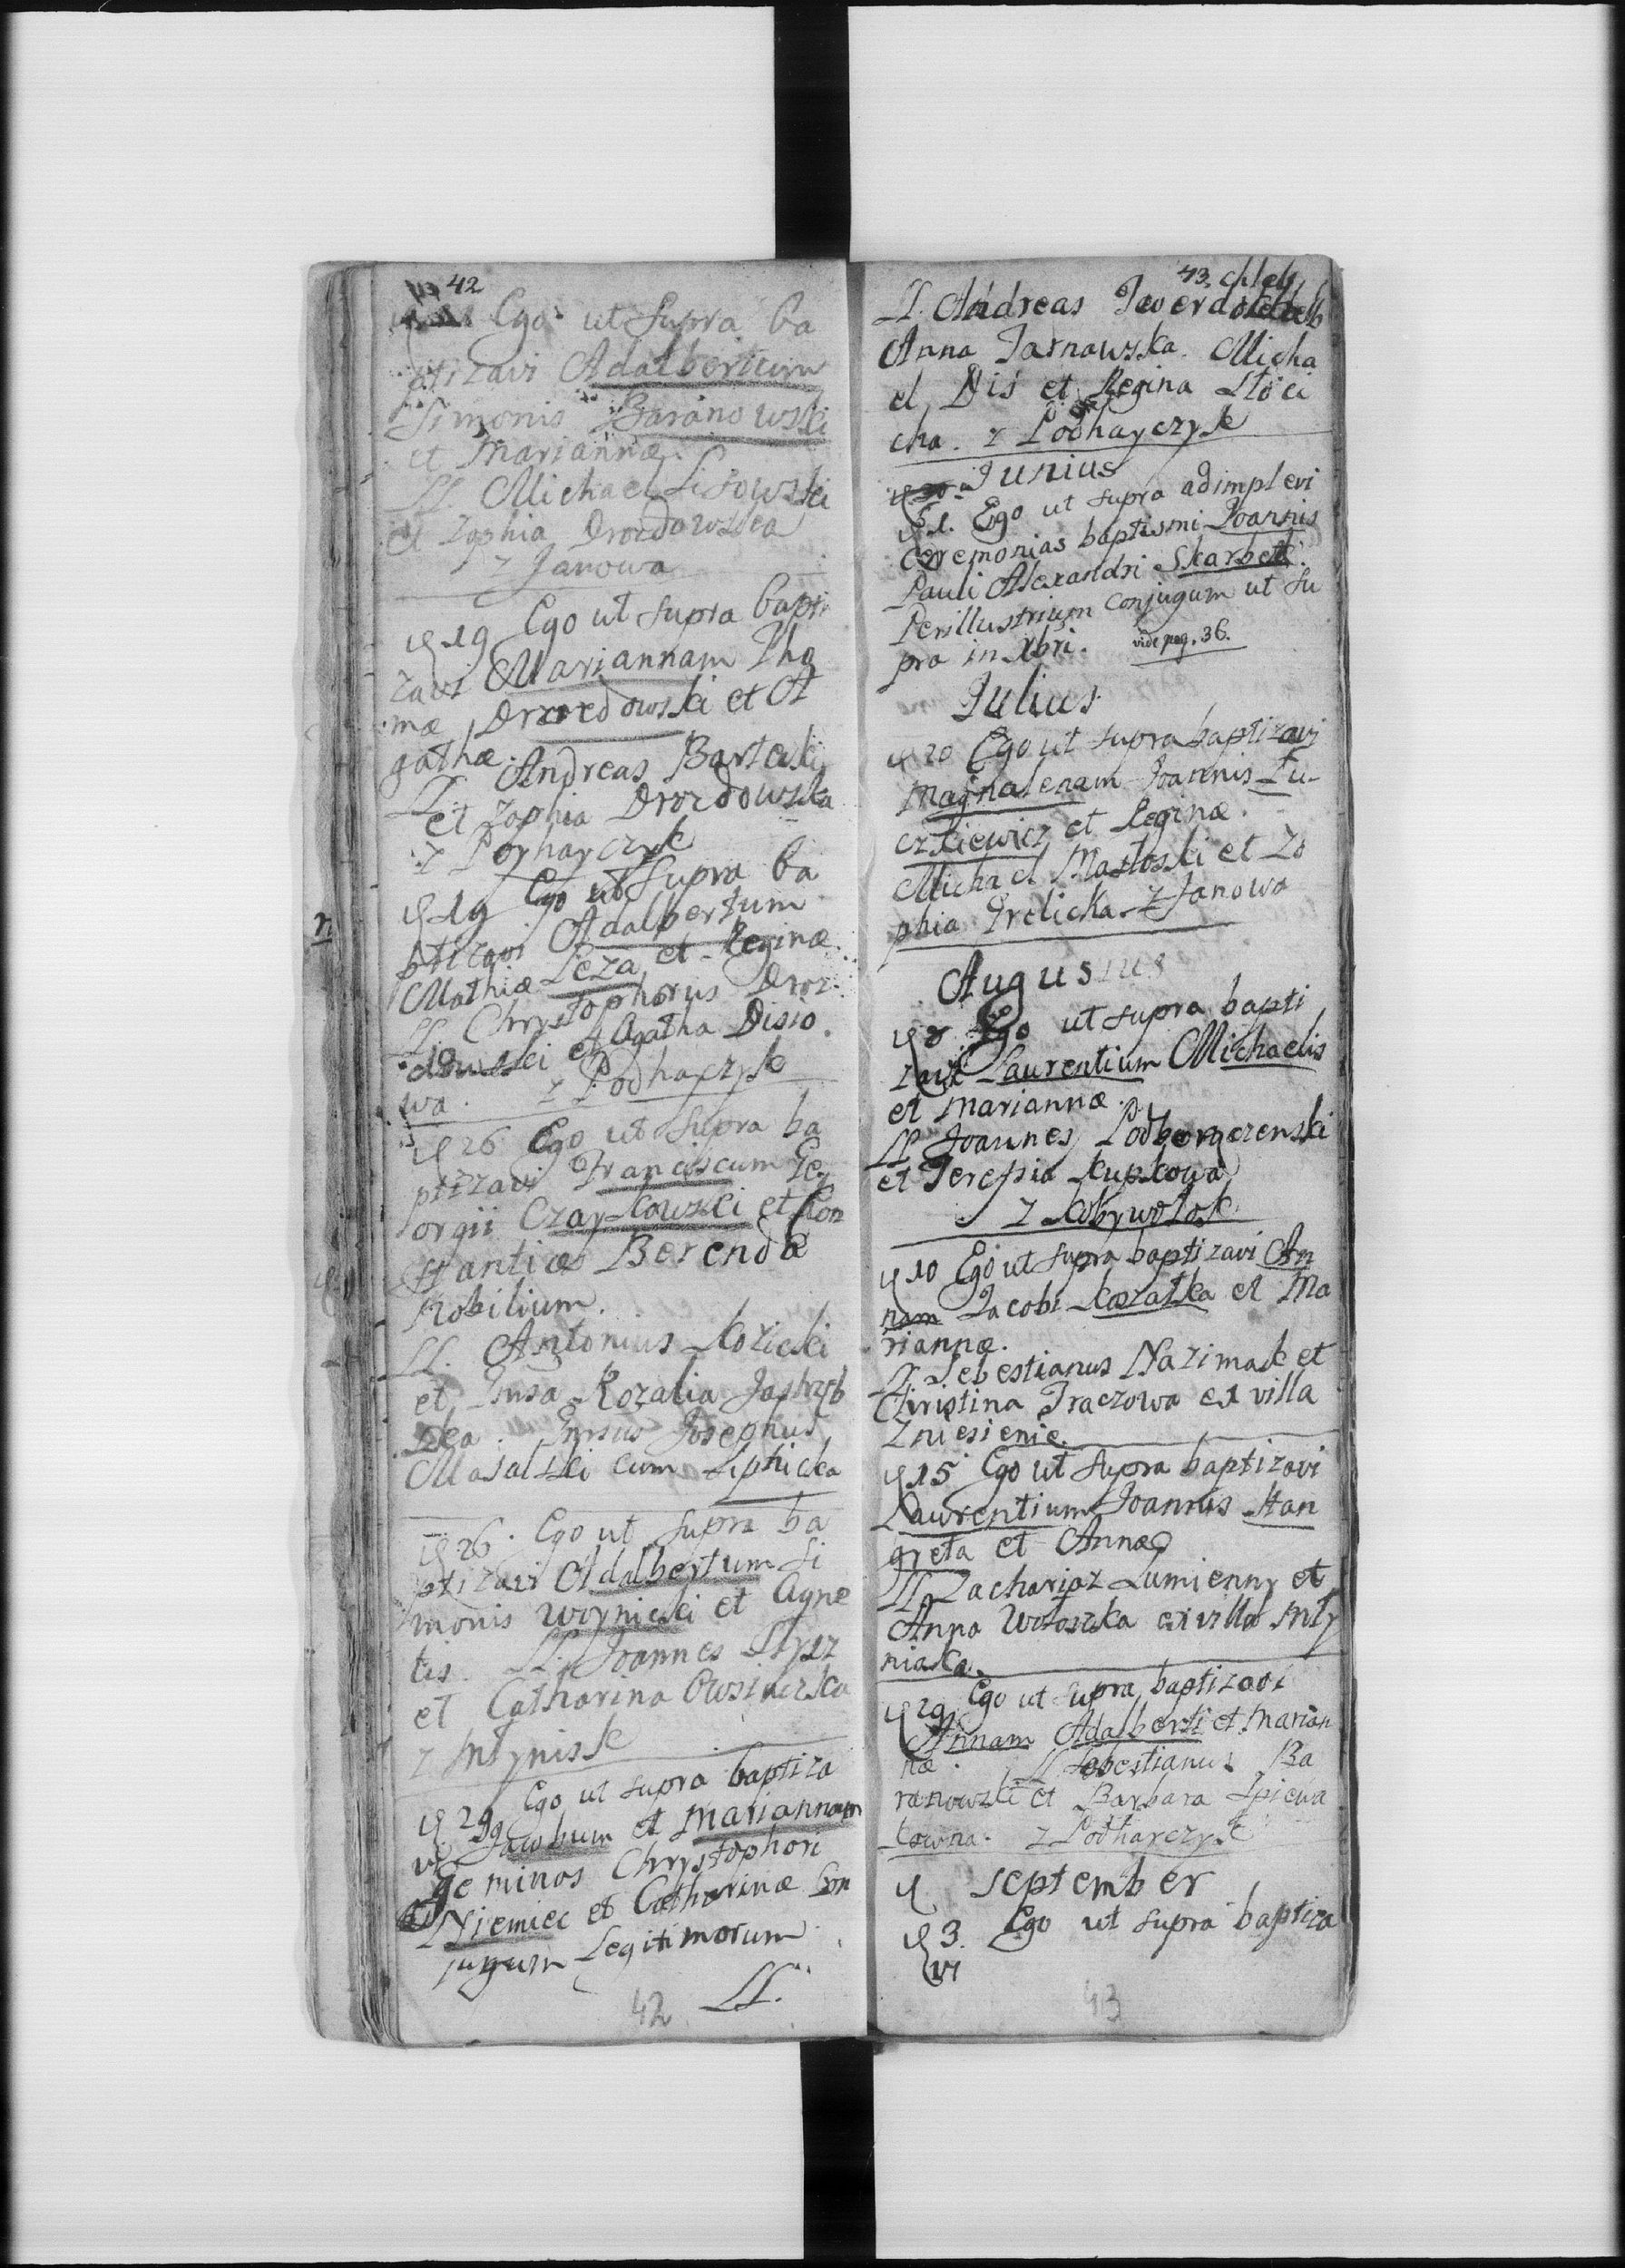 42
Ego ut supra ba
ptizavi Adalbertum
Simonis Baranowski
et Mariannæ.
LL. Michael Lisowski
et Zophia Drozdowska
z Janowa
19 Ego ut supra bapti
zavi Mariannam Tho
mæ Drozdowski et A
gathæ.
LL. Andreas Barteski
et Zophia Drozdowska
z Poyharczyk
19 Ego ut supra ba
ptizavi Adalbertum
Mathiæ Leza et Reginæ.
LL. Chrystophorus Droz
dowski et Agatha Disio
wa. z Podhaczyk
26 Ego ut supra ba
ptizavi Franciscum Ge
orgii Czaykowski et Con
stantiæ Berenda
Nobilium.
LL. Antonius Kozicki
et Gnsa Rozalia Jastrzęb
ska. Gnsus Josephus
Masalski cum Liphicka
26. Ego ut supra ba
ptizavi Adalbertum Si
monis Woynicki et Agne
tis. LL. Joannes Slysz
et Catharina Owsinczka
z Mlynisk
29 Ego ut supra baptiza
vi Jacobum et Mariannam
geminos Chrystophori
Niemiec et Catharinæ Con
jugum Legitimorum
LL.
42
43. chleb
LL. Andreas Twerdochleb
Anna Tarnawska. Micha
el Dis et Regina Sloi ci
cha. z Podhayczyk
Junius
1. Ego ut supra adimplevi
Ceremonias baptismi Joannis
Pauli Alexandri Skarbek.
Perillustrium Conjugum ut su
pra in Xbri. vide pag. 36.
Julius
20 Ego ut supra baptizavi
Magnalenam Joannis Lu-
czkiewicz et Reginæ.
Michael Masłoski et Zo
phia Trelicka z Janowa
Augustus
8 Ego ut supra bapti
zavi Laurentium Michaelis
et Mariannæ.
LL Joannes Podhorgezenski
et Teressia Kupkowa
z Kobywołok
10 Ego ut supra baptizavi An
nam Jacobi Kozałka et Ma
riannæ.
LL Sebestianus Nazimak et
Christina Traczowa ex villa
Zniesienie.
15 Ego ut supra baptizavi
Laurentium Joannis Stan
greta et Annæ
LL Zachariasz Lumienny et
Anna Wołoszka ex villa Mły
niska.
29 Ego ut supra baptizavi
Annam Adalberti et Marian
næ. LL Sebestianus Ba
ranowski et Barbara Spiewa
kowna. z Podhayczyk
September
3. Ego ut supra baptiza
vi
43